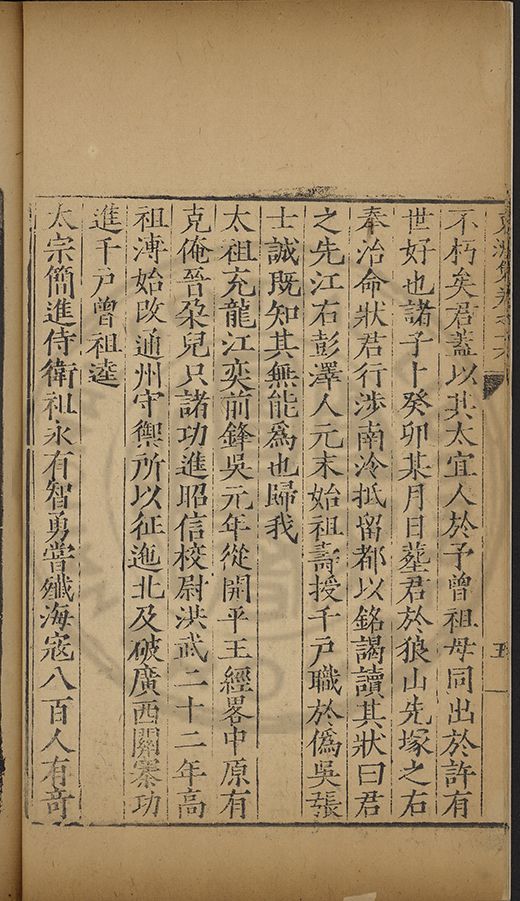 不朽矣君蓋以其太宜人於予曾祖母同出於許有
世好也諸子卜癸卯某月日塟君於狼山先塚之右
奉治命狀君行涉南泠抵留都以銘謁讀其狀曰君
之先江右彭澤人元末始祖壽授千戶職於僞吳張
士誠既知其無能爲也歸我
太祖充龍江奕前鋒吳元年從開平王經畧中原有
克俺晉朶兒只諸功進昭信校尉洪武二十二年高
祖溥始改通州守禦所以征迤北及破廣西關寨功
進千戶曾祖逵
太宗簡進侍衛祖永有智勇嘗殲海寇八百人有奇
五